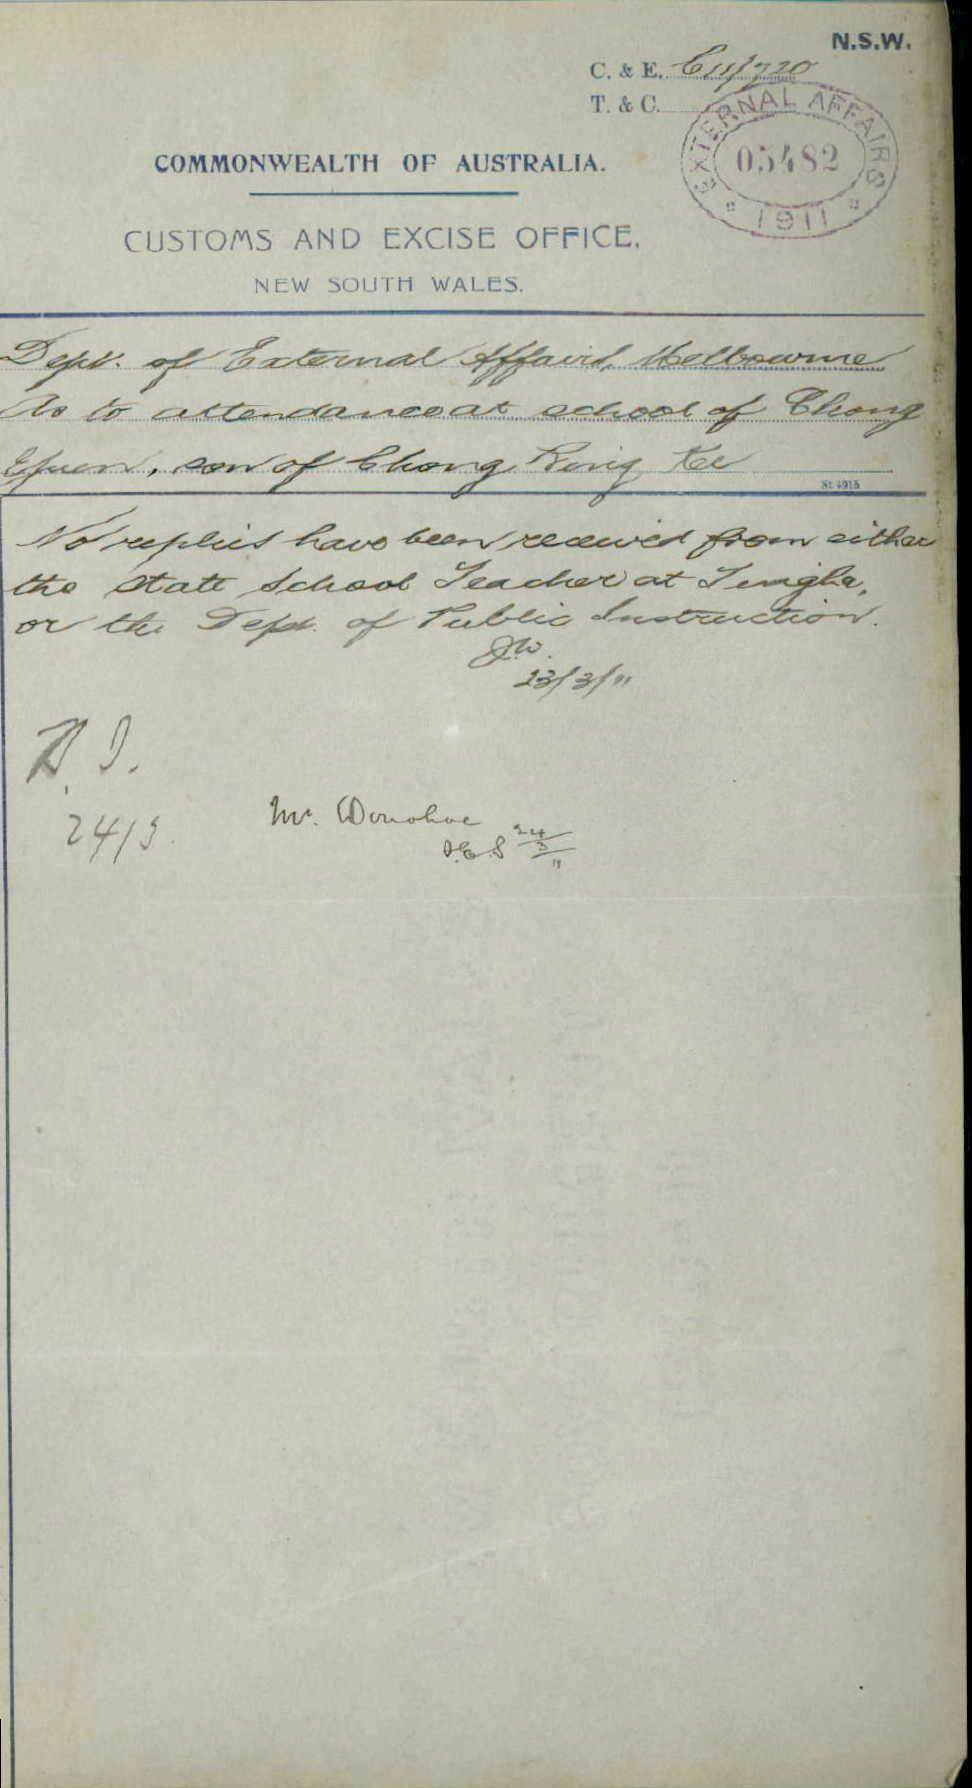 N.S.W.
C. & E.
T. & C.
EXTERNAL AFFAIRS
05482
1911
COMMONWEALTH OF AUSTRALIA.
CUSTOMS AND EXCISE OFFICE,
NEW SOUTH WALES.
Dept. of External Affairs, Melbourne
As to attendance at school of Chong
son of Chong King Kee
St. 4915
No replies have been received from either
the State School Teacher at Tingha,
or the Dept. of Public Instruction.
23/3/11
24/3
Mr. Donohoe
24/3/11